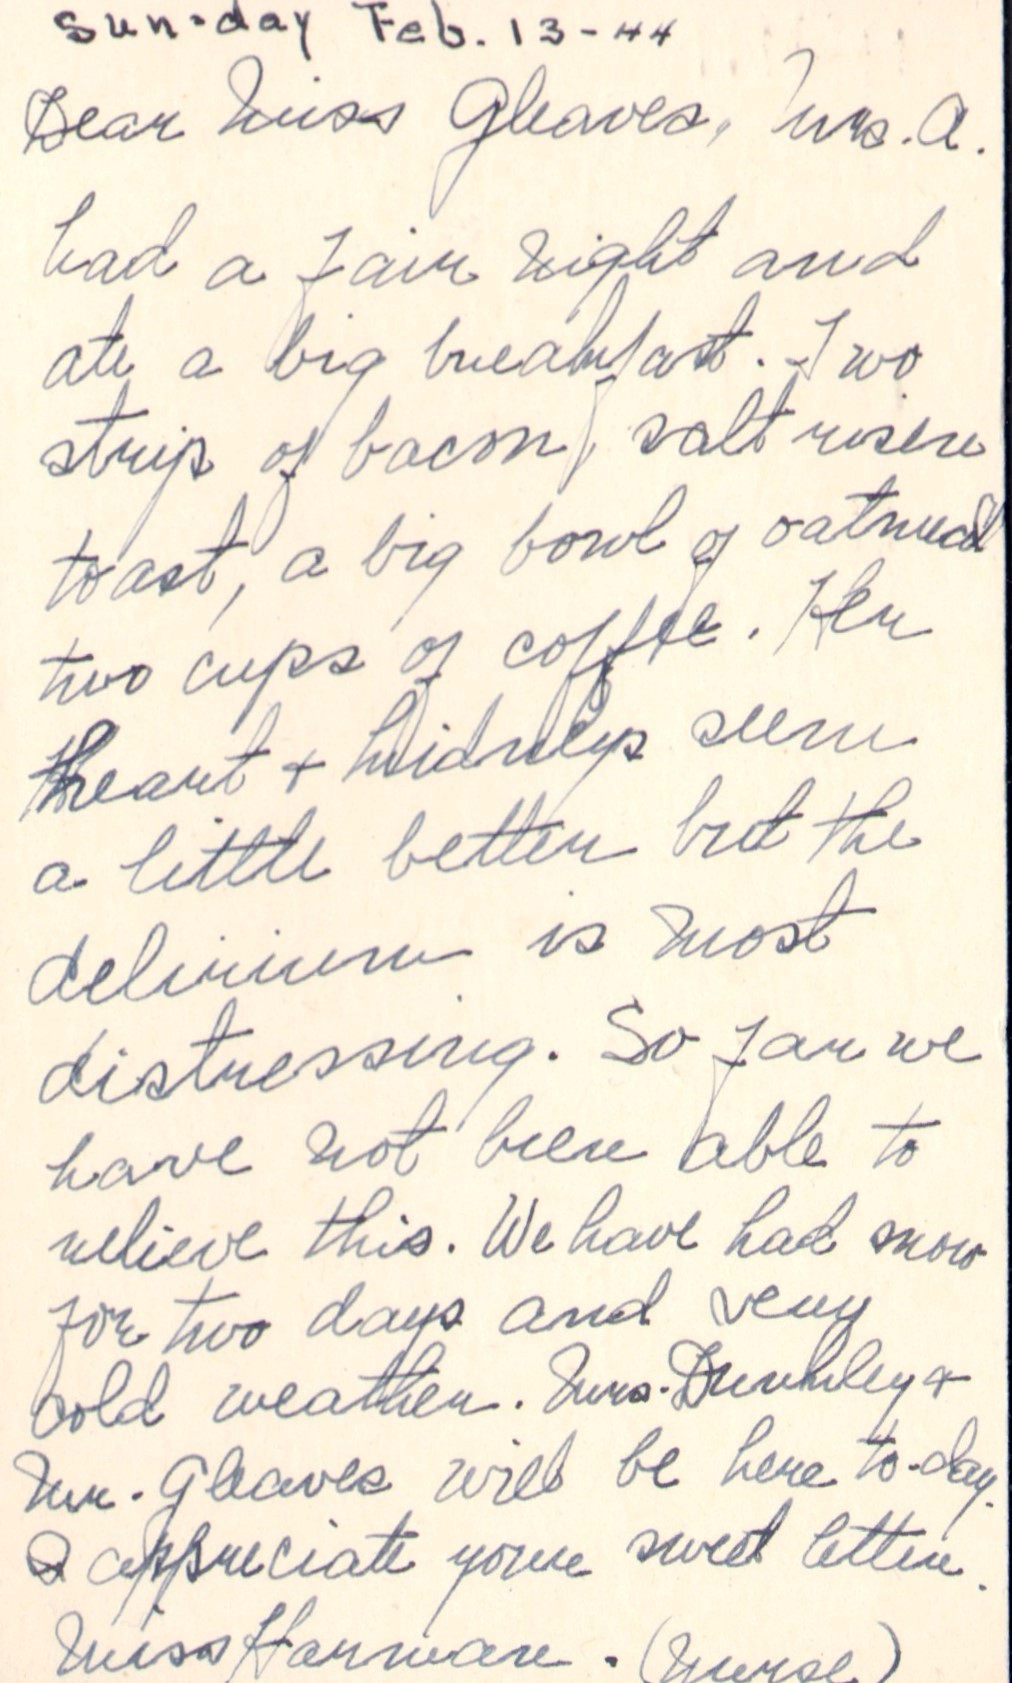 Sun-day Feb. 13-44
Dear Miss Gleaves, Mrs. A.
had a fair night and
ate a big breakfast. Two
strip of bacon, salt risen
toast, a big bowl of oatmeal
two cups of coffee. Her
heart + kidneys seem
a little better but the
delirium is most
distressing. So far we
have not been able to
relieve this. We have had snow
for two days and very
cold weather. Mrs. Dunkley +
Mr. Gleaves will be here to-day.
I appreciate your sweet letter.
Miss Harman. (Nurse)